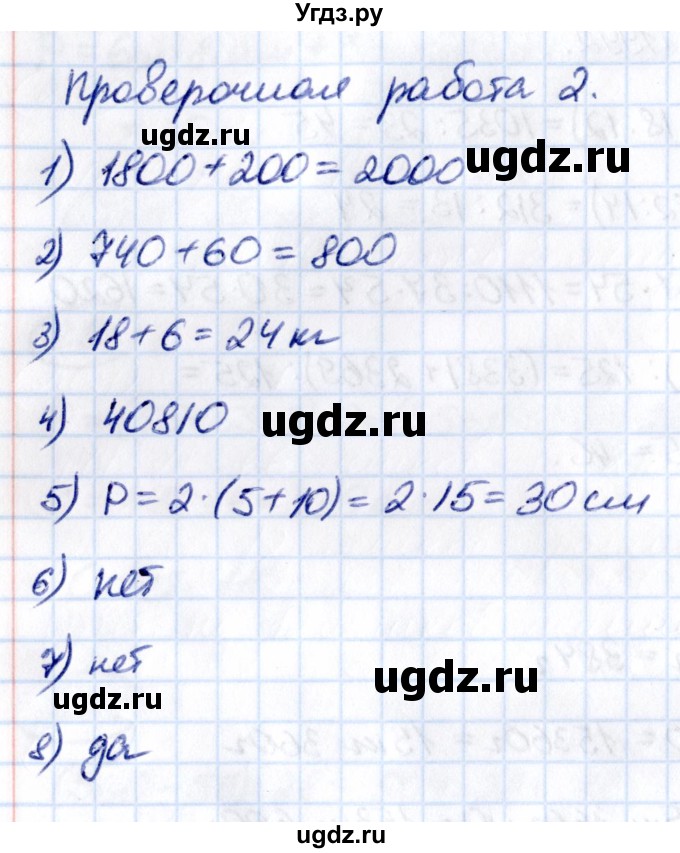 Угдз.ру
Проверочная работа 2.
ugdz.ru
ugdz.ru
1) 1800+200=2000
2) 740+60=800
3) 18+6=24кг
4) 40810
ugdz.ru
5) P=2·(5+10)=2·15=30см
6) нет
7) нет
ugdz.ru
ugdz.ru
8) да
ugdz.ru